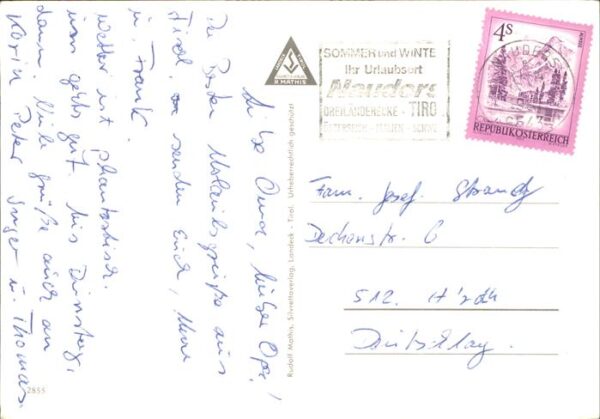 Liebe Oma, lieber Opa!
Die Besten Urlaubsgrüße aus
Tirol, senden Euch,
u. Frank.
Wetter ist phantastisch.
uns gehts gut. Bis Dienstag,
dann. Viele grüße auch an
Karin Peter Inge u. Thomas.
2855
Rudolf Mathis, Silvrettaverlag, Landeck - Tirol. Urheberrechtlich geschützt
R MATHIS
SOMMER und WINTE
Ihr Urlaubsort
Nauders
DREILÄNDERECKE - TIRO
ÖSTERREICH - ITALIEN - SCHWE
4S
REPUBLIK ÖSTERREICH
Fam. Josef Strandz
Dechanstr. 6
512. Hürth